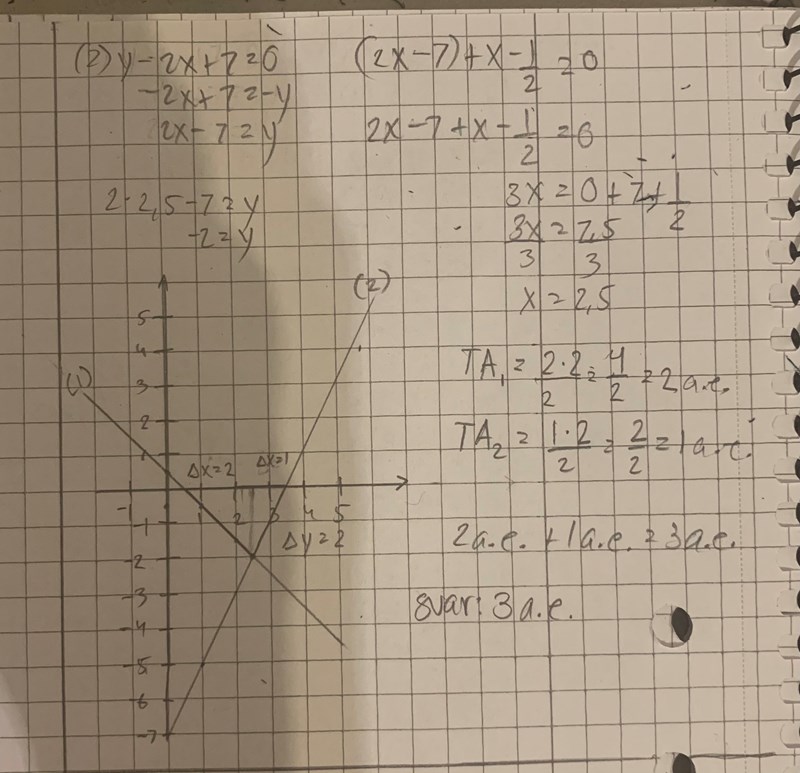 (2) y - 2x + 7 = 0
-2x + 7 = -y
2x - 7 = y
2·2,5 - 7 = y
-2 = y
(2x - 7) + x - 1/2 = 0
2x - 7 + x - 1/2 = 0
3x = 0 + 7 + 1/2
3x/3 = 7,5/3
x = 2,5
(2)
5
4
(1)
3
2
1
Δx=2 Δx=1
-1 1 2 3 4 5
-1
Δy=2
-2
-3
-4
-5
-6
-7
TA₁ = 2·2/2 = 4/2 = 2 a.e.
TA₂ = 1·2/2 = 2/2 = 1 a.e.
2 a.e. + 1 a.e. = 3 a.e.
svar: 3 a.e.